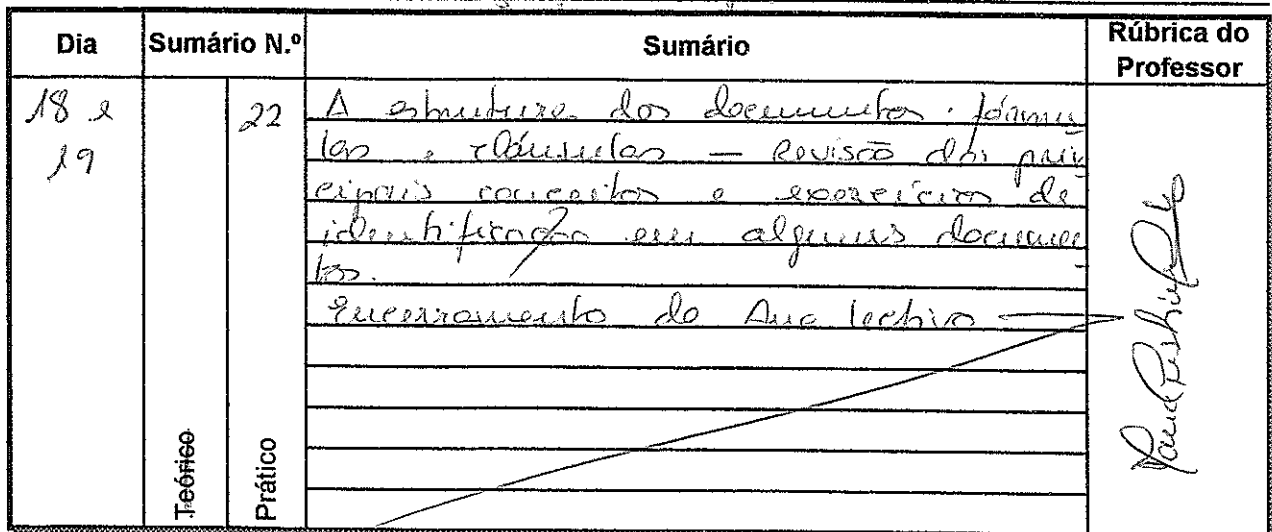 Dia Sumário N.º Sumário Rúbrica do Professor
18 e 22 A estrutura dos documentos: fórmu
19 las e cláusulas — Revisão dos prin
cipais conceitos e exercícios de
identificação em alguns documen
tos.
Encerramento do Ano lectivo
Teórico
Prático